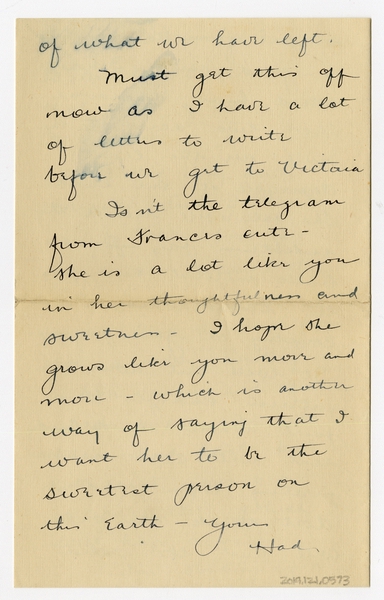 of what we have left.
Must get this off
now as I have a lot
of letters to write
before we get to Victoria
Isn't the telegram
from Frances cute -
she is a lot like you
in her thoughtfulness and
sweetness - I hope she
grows like you more and
more - which is another
way of saying that I
want her to be the
sweetest person on
this Earth - Yours
Had.
2019.121.0573